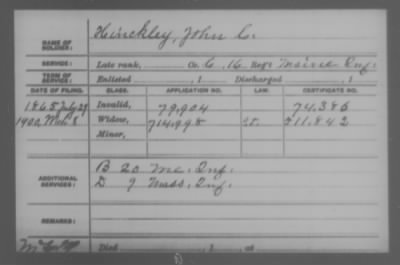 NAME OF SOLDIER: Hinckley, John C.
SERVICE: Late rank, Co. C, 16 Reg't Maine Inf.
TERM OF SERVICE: Enlisted , 1 Discharged , 1
DATE OF FILING. CLASS. APPLICATION NO. LAW. CERTIFICATE NO.
1865 July 29 Invalid, 79,904 74,386
1900, Mch 8 Widow, 714,998 511,842
Minor,
ADDITIONAL SERVICES: B 20 Me. Inf.
D 9 Mass. Inf.
REMARKS:
Died , 1 , at